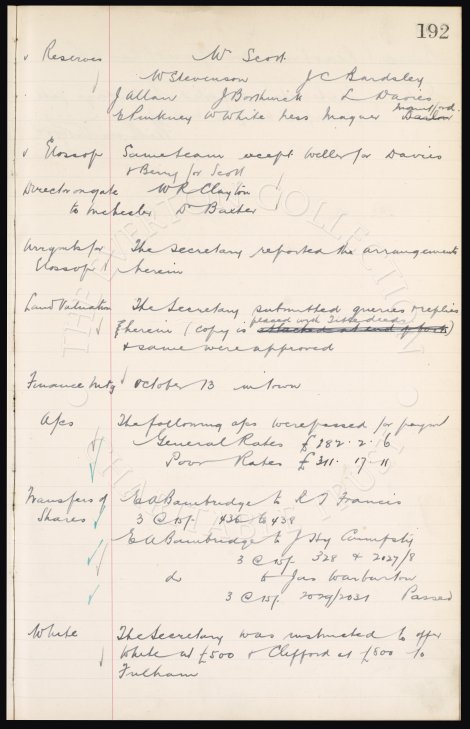 192
v Reserves W Scott
W Stevenson J C Bardsley
J Allan J Borthwick L Davies
Mountford
E Pinkney W White Hess Magner Barlow
v Glossop Same team except Weller for Davies
& Berry for Scott
Director on gate W R Clayton
to Dr Baxter
Arrgmts for The Secretary reported the arrangements
Glossop herein
Land Valuation The Secretary submitted queries & replies
placed with Title deeds
herein (copy is attached at end of book)
& same were approved
Finance mtg October 13 in town
A/cs The following a/cs were passed for paymt
General Rates £282. 2. 6
Poor Rates £311. 17. 11
Transfers of E A Bainbridge to Francis
Shares 3 @ 15/- 436 to 438
E A Bainbridge to J Hy
3 @ 15/- 328 & 2027/8
do to Jas Warburton
3 @ 15/- 2029/2031 Passed
White The Secretary was instructed to offer
White at £500 & Clifford at £800 to
Fulham
THE EVERTON COLLECTION
CHARITABLE TRUST